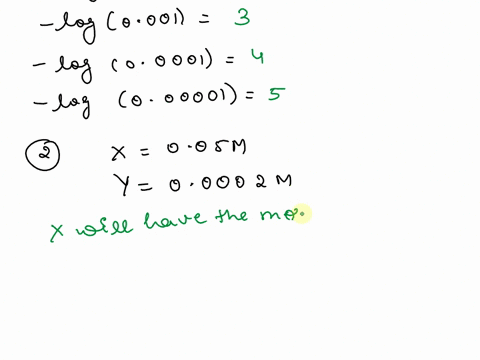 -log (0.001) = 3
-log (0.0001) = 4
-log (0.00001) = 5
2 X = 0.05M
Y = 0.0002 M
X will have the mo